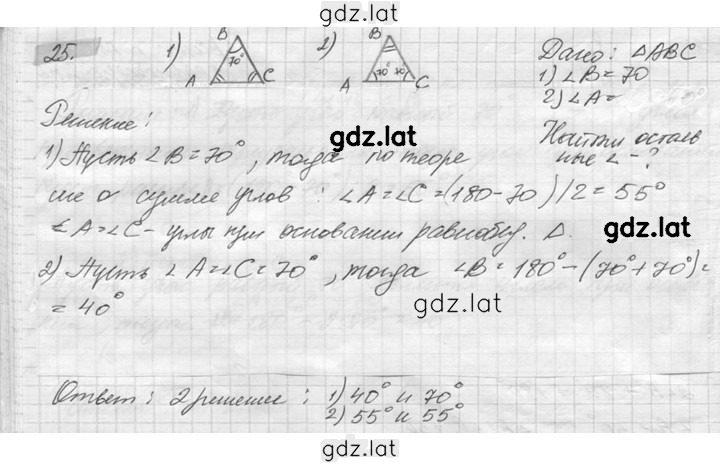 gdz.lat
25. 1) B 70° A C 2) B 70° 70° A C Дано: △ABC
1) ∠B=70
2) ∠A=
Решение: Найти осталь
gdz.lat
1) Пусть ∠B=70°, тогда по теоре ные ∠-?
ме о сумме углов: ∠A=∠C=(180-70)/2=55°
gdz.lat
∠A=∠C - углы при основании равнобед. △.
2) Пусть ∠A=∠C=70°, тогда ∠B=180°-(70°+70°)=
=40°
gdz.lat
Ответ: 2 решение: 1) 40° и 70°
2) 55° и 55°
gdz.lat
gdz.lat